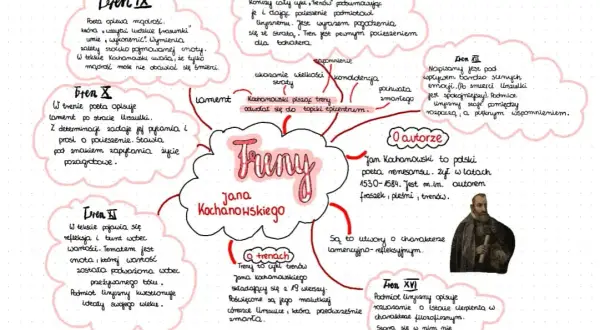 Tren IX
Poeta opiewa mądrość,
która „uszyć wielkie frasunki"
umie „wykorzenić". Wymienia
zalety stoicko pojmowanej cnoty.
W tekście Kochanowski uważa, że tylko
mądrość może nie obawiać się śmierci.
Kończy cały cykl „Trenów" podsumowując
je i dając pocieszenie podmiotowi
lirycznemu. Jest wyrazem pogodzenia
się ze stratą. Tren jest pewnym pocieszeniem
dla bohatera.
Tren VII
Napisany jest pod
wpływem bardzo silnych
emocji. (Po śmierci Urszulki
jest spokojniejszy). Podmiot
liryczny stoi pomiędzy
rozpaczą, a pięknym wspomnieniem.
napomnienie
ukazanie wielkości
straty
kondolencja
pochwała
zmarłego
lament
Kochanowski pisząc treny
odwołał się do topiki epicedium.
Tren X
W trenie poeta opisuje
lament po stracie Urszulki.
Z determinacją zadaje jej pytania i
prosi o pocieszenie. Stawia
pod znakiem zapytania życie
pozagrobowe.
Treny
Jana
Kochanowskiego
O autorze
Jan Kochanowski to polski
poeta renesansu. Żył w latach
1530-1584. Jest m.in. autorem
fraszek, pieśni, trenów.
Tren XI
W tekście pojawia się
refleksja i bunt wobec
wartości. Tematem jest
cnota, której wartość
została podważona wobec
przeżywanego bólu.
Podmiot liryczny kwestionuje
ideały swojego wieku.
O trenach
Treny to cykl trenów
Jana Kochanowskiego
składający się z 19 wierszy.
Poświęcone są jego malutkiej
córeczce Urszulce, która przedwcześnie
zmarła.
Są to utwory o charakterze
lamentacyjno-refleksyjnym.
Tren XVI
Podmiot liryczny opisuje
rozważanie o istocie cierpienia w
charakterze filozoficznym.
Stara się w nim nie